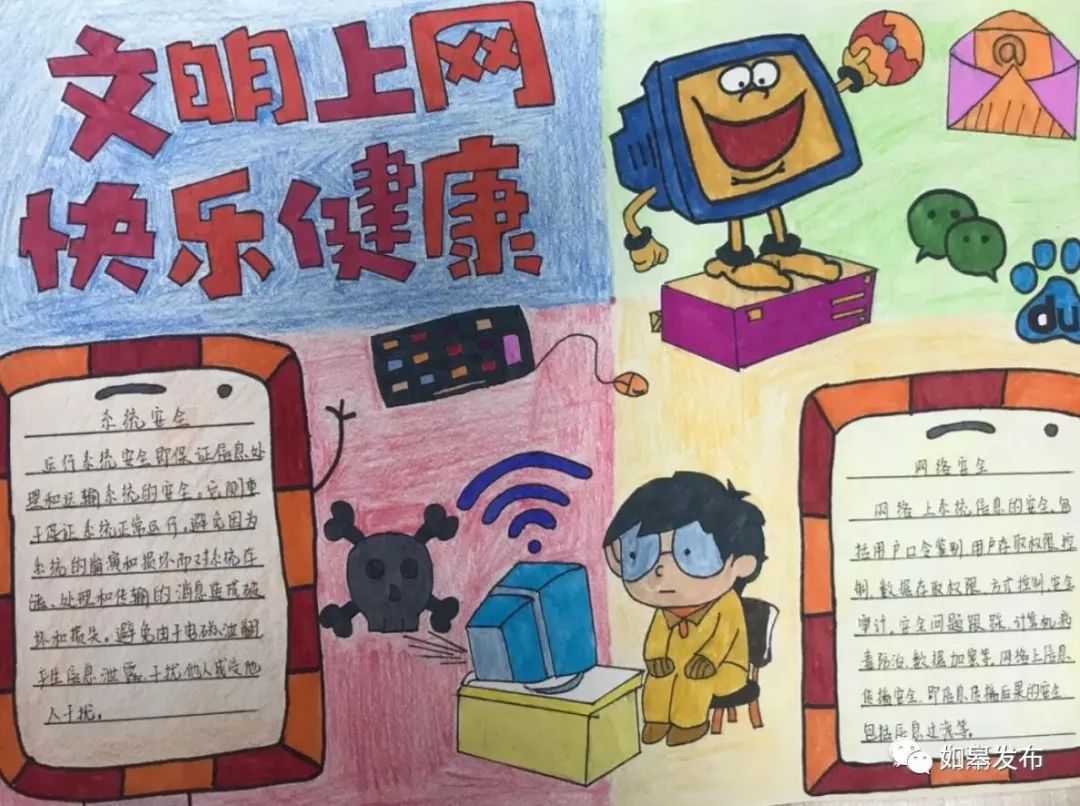 文明上网
快乐健康
@
du
系统安全
运行系统安全即保证信息处
理和运输系统的安全。它侧重
于保证系统正常运行。避免因为
系统的崩演和损坏而对系统存
储、处理和传输的消息造成破
坏和损失。避免由于电磁泄翻,
产生信息泄露,干扰他人或受他
人干扰。
网络安全
网络上系统信息的安全,包
括用户口令鉴别,用户存取权限控
制,数据存取权限、方式控制,安全
审计。安全问题跟踪。计算机病
毒防治,数据加密等。网络上信息
传播安全,即信息传播后果的安全,
包括信息过滤等。
如幕发布